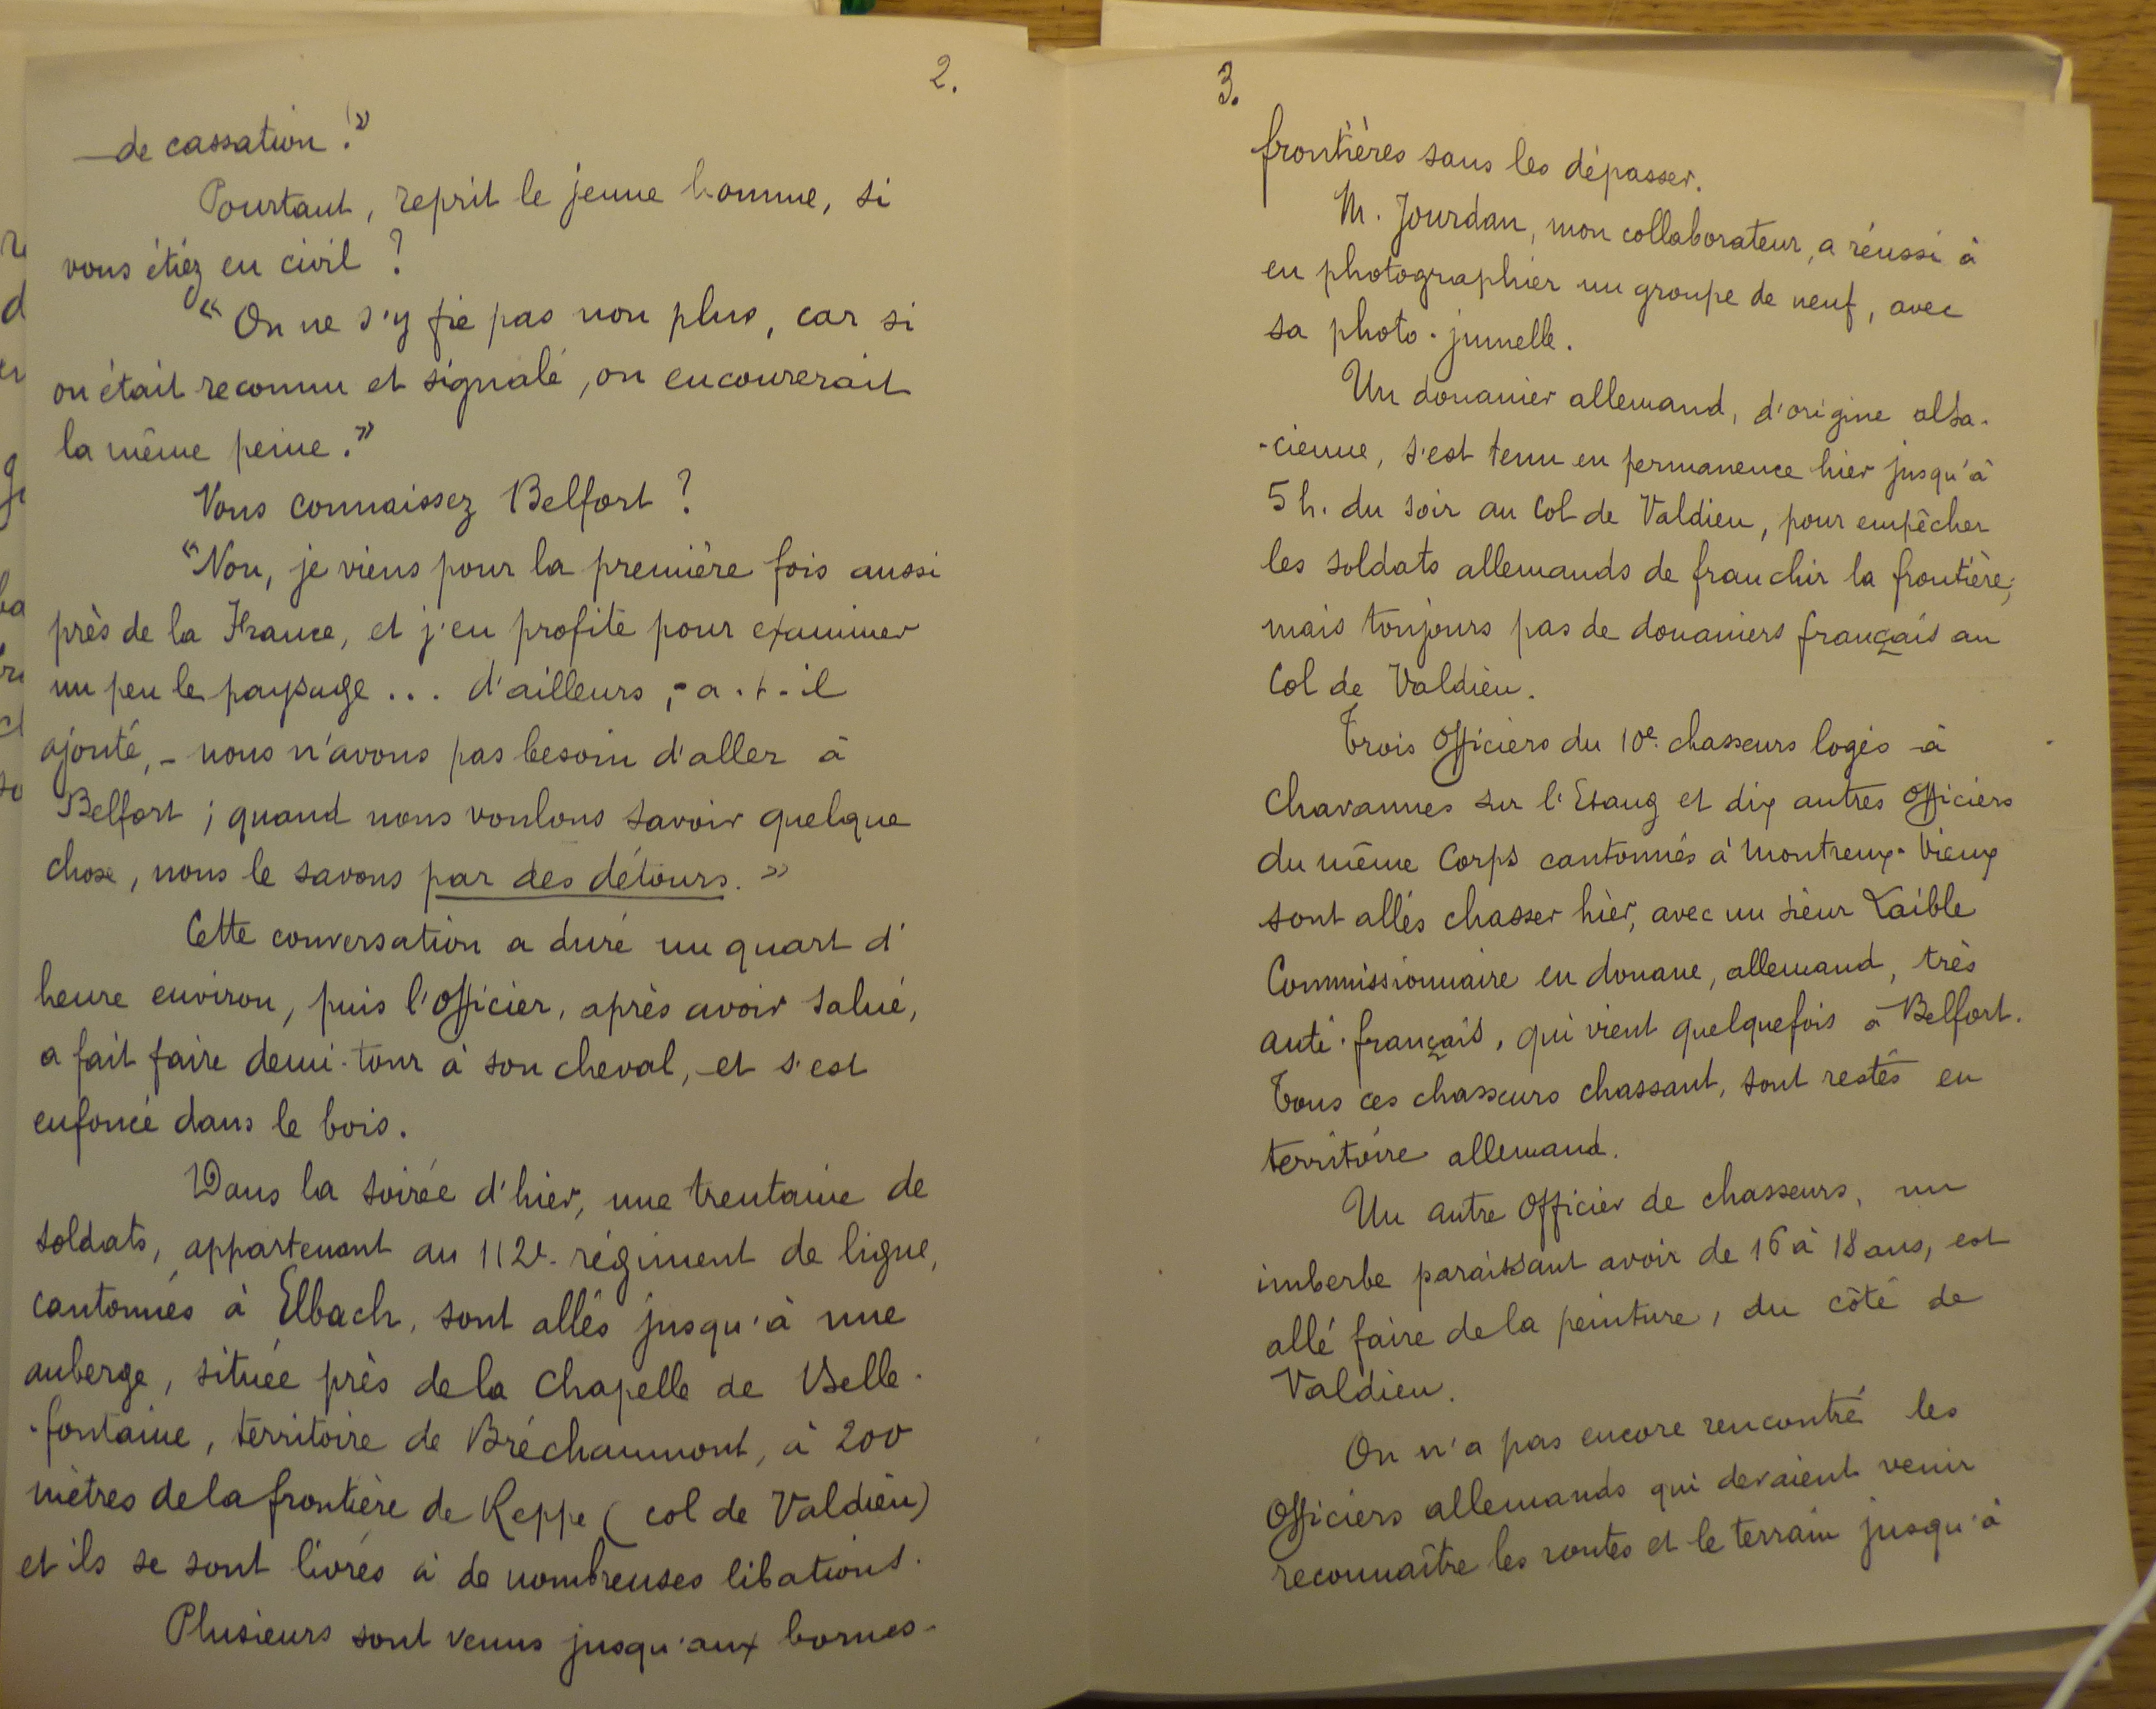 2.
de cassation !"
Pourtant, reprit le jeune homme, si
vous étiez en civil ?
"On ne s'y fie pas non plus, car si
on était reconnu et signalé, on encourerait
la même peine."
Vous connaissez Belfort ?
"Non, je viens pour la première fois aussi
près de la France, et j'en profite pour examiner
un peu le paysage ... d'ailleurs, - a-t-il
ajouté, - nous n'avons pas besoin d'aller à
Belfort ; quand nous voulons savoir quelque
chose, nous le savons par des détours. "
Cette conversation a duré un quart d'
heure environ, puis l'officier, après avoir salué,
a fait faire demi-tour à son cheval, et s'est
enfoncé dans le bois.
Dans la soirée d'hier, une trentaine de
soldats, appartenant au 112e régiment de ligne,
cantonnés à Elbach, sont allés jusqu'à une
auberge, située près de la Chapelle de Belle-
-fontaine, territoire de Bréchaumont, à 200
mètres de la frontière de Reppe ( col de Valdieu)
et ils se sont livrés à de nombreuses libations.
Plusieurs sont venus jusqu'aux bornes-
3.
frontières sans les dépasser.
M. Jourdan, mon collaborateur, a réussi à
en photographier un groupe de neuf, avec
sa photo-jumelle.
Un douanier allemand, d'origine alsa-
-cienne, s'est tenu en permanence hier jusqu'à
5 h. du soir au Col de Valdieu, pour empêcher
les soldats allemands de franchir la frontière;
mais toujours pas de douaniers français au
Col de Valdieu.
Trois Officiers du 10e chasseurs logés à
Chavannes sur l'Etang et dix autres Officiers
du même Corps cantonnés à Montreux-Vieux
sont allés chasser hier, avec un sieur Laible
Commissionnaire en douane, allemand, très
anti-français, qui vient quelquefois à Belfort.
Tous ces chasseurs chassant, sont restés en
territoire allemand.
Un autre Officier de chasseurs, un
imberbe paraissant avoir de 16 à 18 ans, est
allé faire de la peinture, du côté de
Valdieu.
On n'a pas encore rencontré les
Officiers allemands qui devaient venir
reconnaître les routes et le terrain jusqu'à